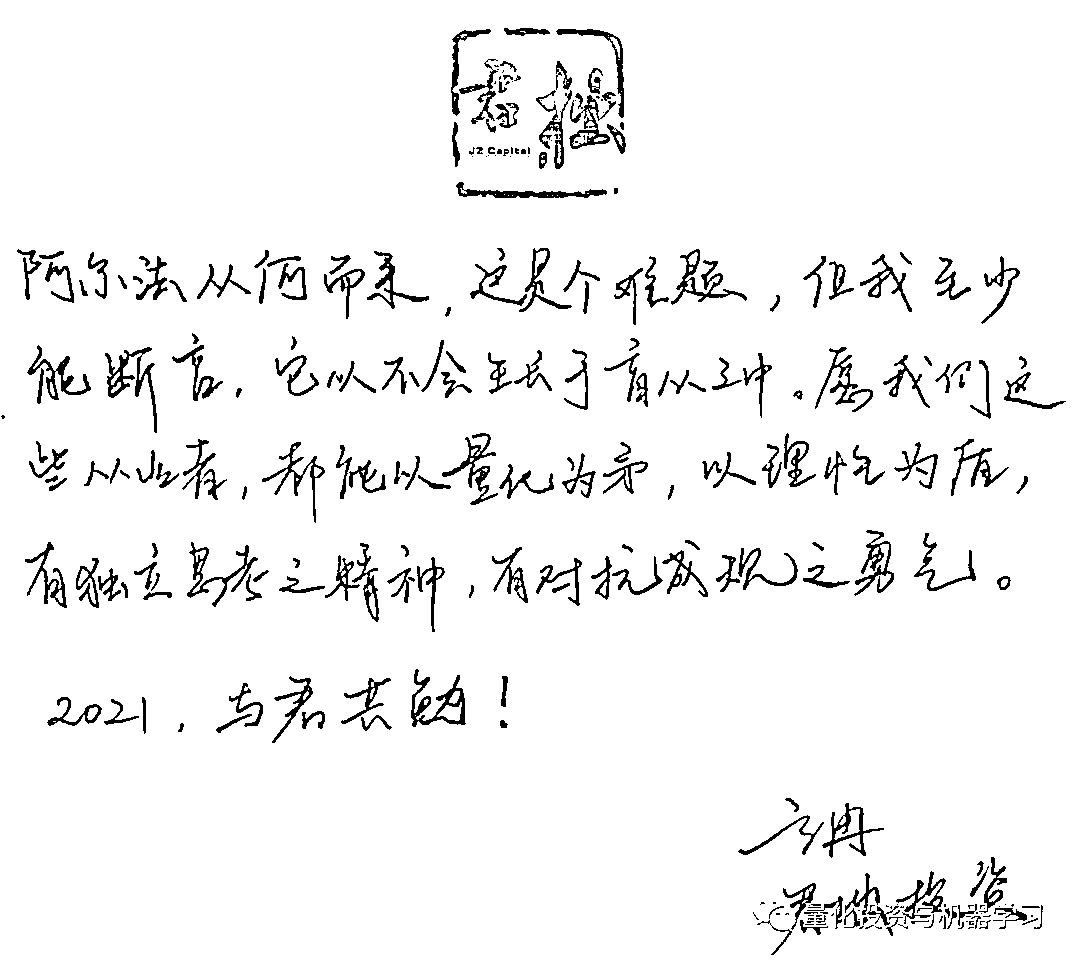 君
JZ Capital
阿尔法从何而来，这是个难题，但我至少
能断言，它从不会生长于盲从之中。愿我们这
些从业者，都能以量化为矛，以理性为盾，
有独立思考之精神，有对抗成观之勇气。
2021，与君共勉！
君 投资
量化投资与机器学习